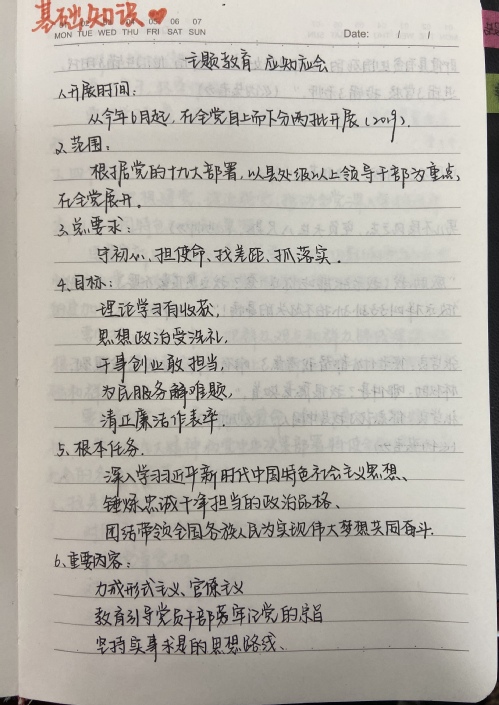 基础知识
04 05 06 07
MON TUE WED THU FRI SAT SUN
Date: / /
主题教育 应知应会
1.开展时间:
从今年6月起,在全党自上而下分两批开展(2019).
2.范围:
根据党的十九大部署,以县处级以上领导干部为重点,
在全党展开.
3.总要求:
守初心、担使命、找差距、抓落实.
4.目标:
理论学习有收获,
思想政治受洗礼,
干事创业敢担当,
为民服务解难题,
清正廉洁作表率.
5、根本任务.
深入学习习近平新时代中国特色社会主义思想、
锤炼忠诚干净担当的政治品格、
团结带领全国各族人民为实现伟大梦想共同奋斗.
6、重要内容:
力戒形式主义、官僚主义
教育引导党员干部劳牢记党的宗旨
坚持实事求是的思想路线、